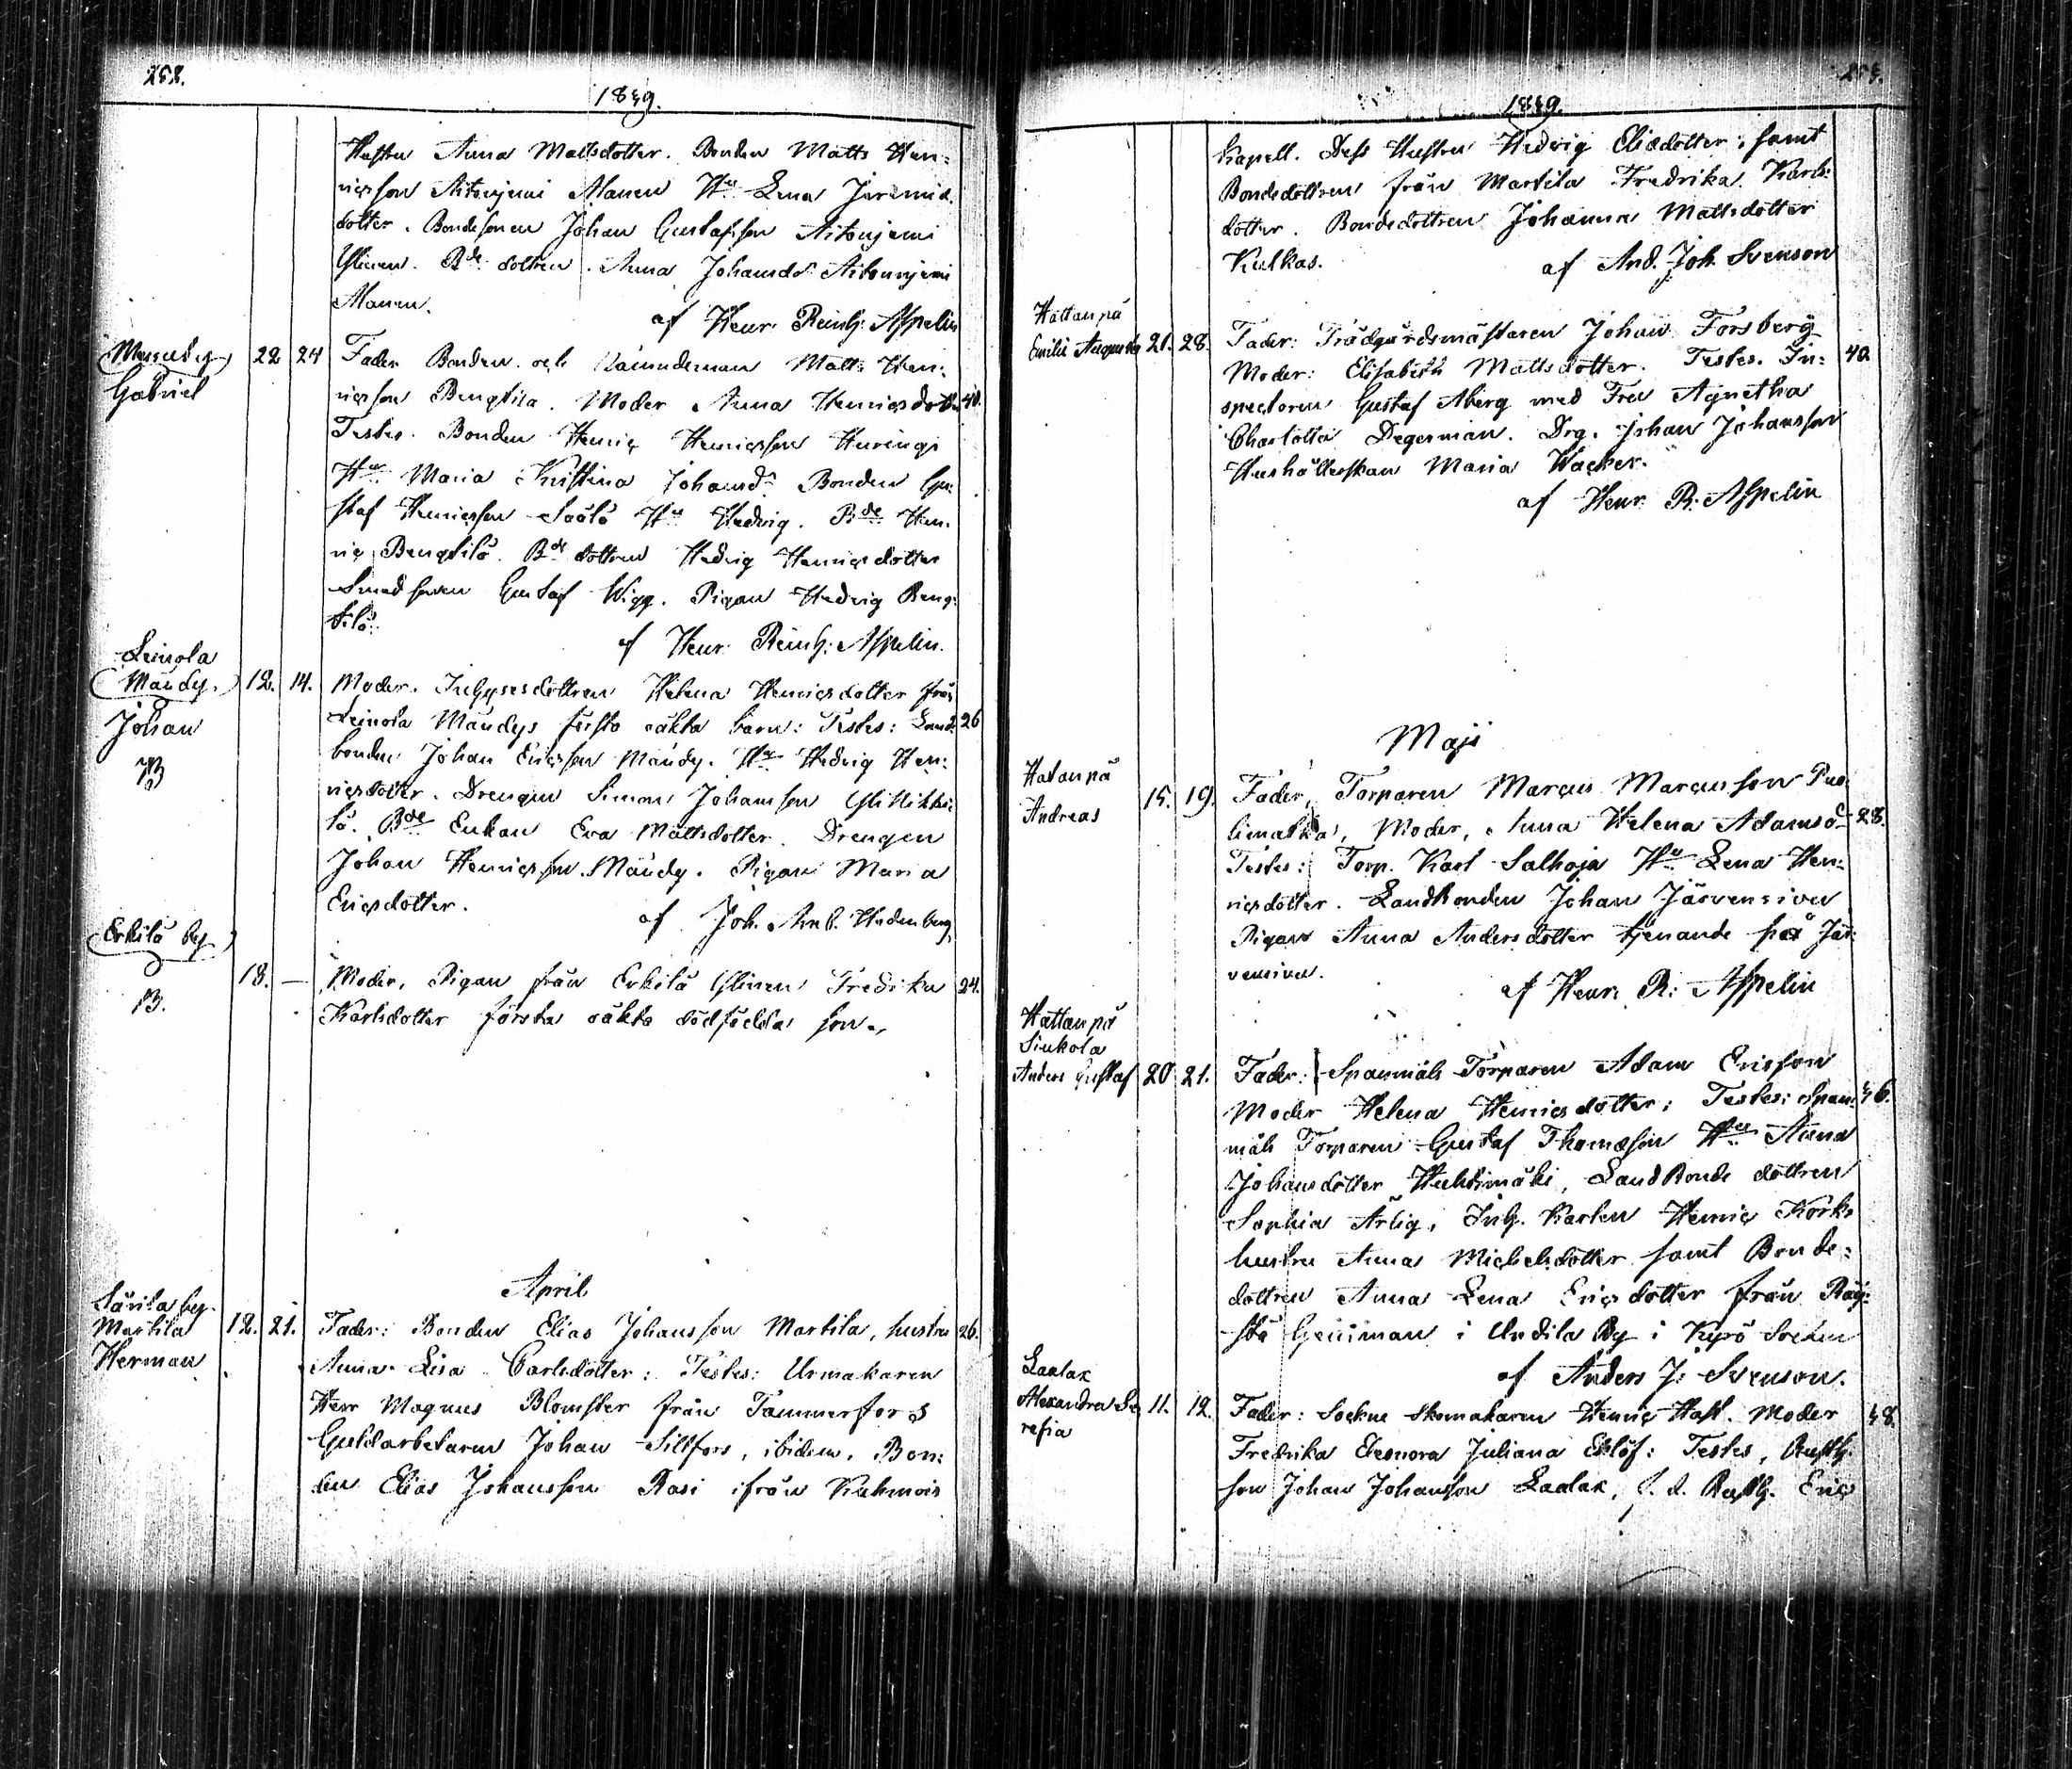 252.
1849.
Hustru Anna Mattsdotter. Bonden Matts Hen:
ricsson Aitonjemi Alanen Hu Lena Jeremid.
dotter. Bondesonen Johan Gustafsson Aitonjemi
Ylinen. Bde dottren Anna Johansdr Aitonnjemi
Alanen.
af Henr. Reinh: Aspelin
22 24 Fader Bonden och Nämndeman Matts Hen:
Gabriel
ricsson Bengtila. Moder Anna Henricsdott. 40.
Testes. Bonden Henric Henricsson Huringi
Hu Maria Kristina Johansdr Bonden Gu:
staf Henricsson Hu Hedvig. Bde Hen:
ric Bengtilä. Bde dottren Hedvig Henricsdotter
Smedsonen Gustaf Wigg. Pigan Hedvig Beng:
tilä.
af Henr: Reinh: Aspelin.
Leinola
(Mändy.) 12. 14. Moder. Inhysesdottren Helena Henricsdotter från
Johan
Leinola Mändys första oäkta barn: Testes: Land: 26
bonden Johan Ericsson Mändy. Hu Hedvig Hen:
B
ricsdotter. Drengen Simon Johansson Yli Nikki:
lä. Bde Enkan Eva Mattsdotter. Drengen
Johan Henricsson Mändy. Pigan Maria
Ericsdotter.
af Joh. Hedenberg,
(Erkilä by)
18. — Moder, Pigan från Erkilä Ylinen Fredrika 24.
B.
Karlsdotter första oäkta dödfödda son.
April
Särila by
Martila 12. 21. Fader: Bonden Elias Johansson Martila, hustru 26.
Herman
Anna Lisa Carlsdotter: Testes: Urmakaren
Herr Magnus Blomster från Tammerfors
Guldarbetaren Johan Sillfors, ibidem, Bon:
den Elias Johansson Rasi ifrån Kuhmois
1849.
Kapell. Dess Hustru Hedvig Eliædotter, samt
Bondedottren från Martila Fredrika Karls:
dotter. Bondedottren Johanna Mattsdotter
Kulkas.
af And. Joh. Svenson
Hattanpä
Emilia Augusta 21. 28. Fader: Trädgårdsmästaren Johan Forsberg 40.
Moder: Elisabeth Mattsdotter. Testes. In:
spectoren Gustaf Åberg med Fru Agnetha
Charlotta Degerman. Drg. Johan Johansson
Hushållerskan Maria Wacker.
af Henr. R: Aspelin
Maji
Hatanpä
Andreas 15. 19. Fader, Torparen Marcus Marcusson Puo:
limatka, Moder, Anna Helena Adamsd. 28.
Testes: Torp. Karl Salhoja Hu Lena Hen:
ricsdotter. Landbonden Johan Järvensivu
Pigan Anna Andersdotter tjenande på Jär:
vensivu.
af Henr: R: Aspelin
Hattanpä
Siukola
Anders Gustaf 20 21. Fader: Spanmåls Torparen Adam Ericsson
Moder Helena Henricsdotter; Testes: Span: 46.
måls Torparen Gustaf Thomasson Hu Anna
Johansdotter Huhtimäki, LandBonde dottren
Sophia Ärlig, Inh. Karlen Henric Körkö
hustru Anna Michelsdotter samt Bonde:
dottren Anna Lena Ericsdotter från
i By i Kyrö Socken
af Anders J: Svenson.
Laalax
Alexandra Se 11. 12. Fader: Sockne skomakaren Henric Hast. Moder 48
rafia
Fredrika Eleonora Juliana Eklöf: Testes, Rusth:
son Johan Johansson Laalax, f. d. Rusth. Eric